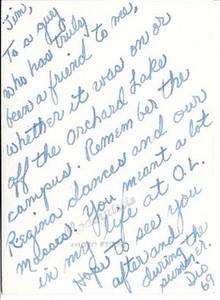 Jim,
To a guy
who has truly
been a friend to me,
whether it was on or
off the Orchard Lake
campus. Remember the
Regina dances and our
You meant a lot
in my life at O.L.
Hope to see you
after and
during the
summer.